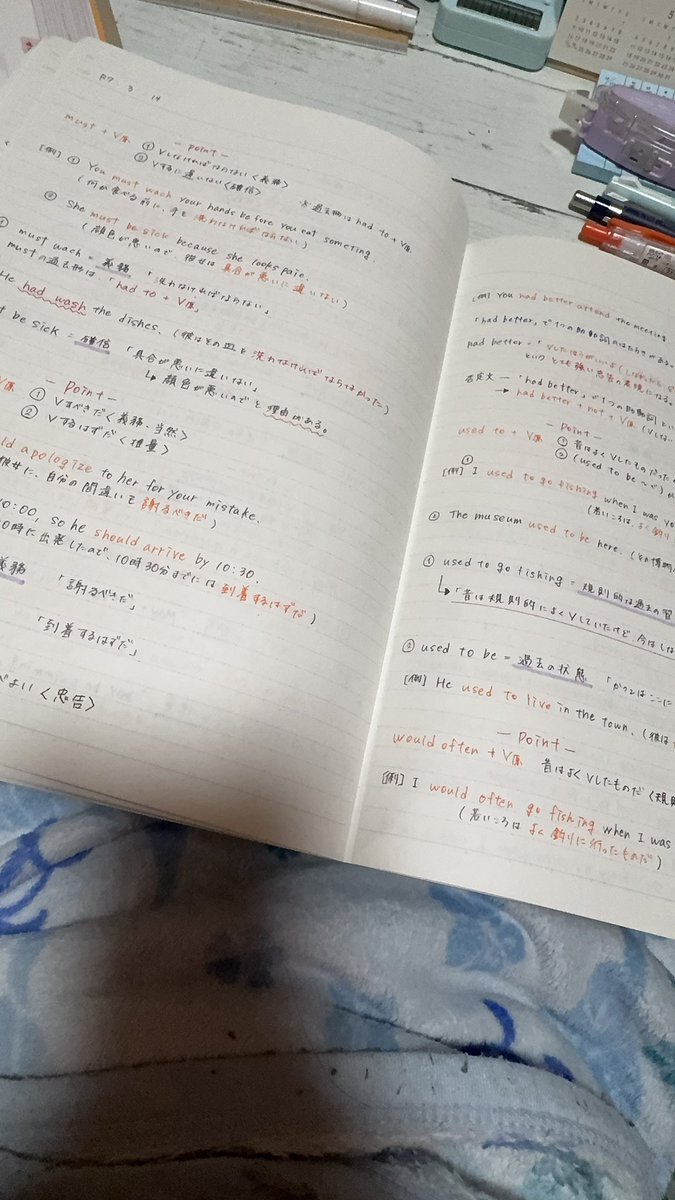 R7 3 14
must + V原
— point —
① Vしなければならない〈義務〉
② Vするに違いない〈確信〉
※過去形は had to + V原
[例] ① You must wach your hands before you eat someting.
(何か食べる前に、手を洗わなければならない)
② She must be sick because she looks paie.
(顔色が悪いので、彼女は具合が悪いに違いない)
① must wach = 義務 「洗わなければならない」
mustの過去形は、「had to + V原」
He had wash the dishes. (彼はその皿を洗わなければならなかった)
t be sick = 確信 「具合が悪いに違いない」
↳ 顔色が悪いのでと理由がある。
V原
— Point —
① Vすべきだ〈義務、当然〉
② Vするはずだ〈推量〉
ld apologize to her for your mistake.
彼女に、自分の間違いを謝るべきだ)
10:00, so he should arrive by 10:30.
0時に出発したので、10時30分までには到着するはずだ)
義務 「謝るべきだ」
「到着するはずだ」
よい〈忠告〉
[例] You had better attend the meeting
「had better」で1つの助動詞のはたらきがある。
had better =「Vしたほうがいいよ
というとても強い忠告の表現になる。
否定文 — 「had better」で1つの助動詞
→ had better + not + V原 (Vしない
used to + V原
— Point —
① 昔はよくVしたものだ
② (used to be ~で)
[例] ① I used to go fishing when I was yo
(若いころは、よく釣り
② The museum used to be here.
① used to go fishing = 規則的な過去の習
↳「昔は規則的によくVしていたけど、今はしな
② used to be = 過去の状態 「かつてはここに
[例] He used to live in the town. (彼は
— Point —
would often + V原 昔はよくVしたものだ
[例] I would often go fishing when I was
(若いころはよく釣りに行ったものだ)